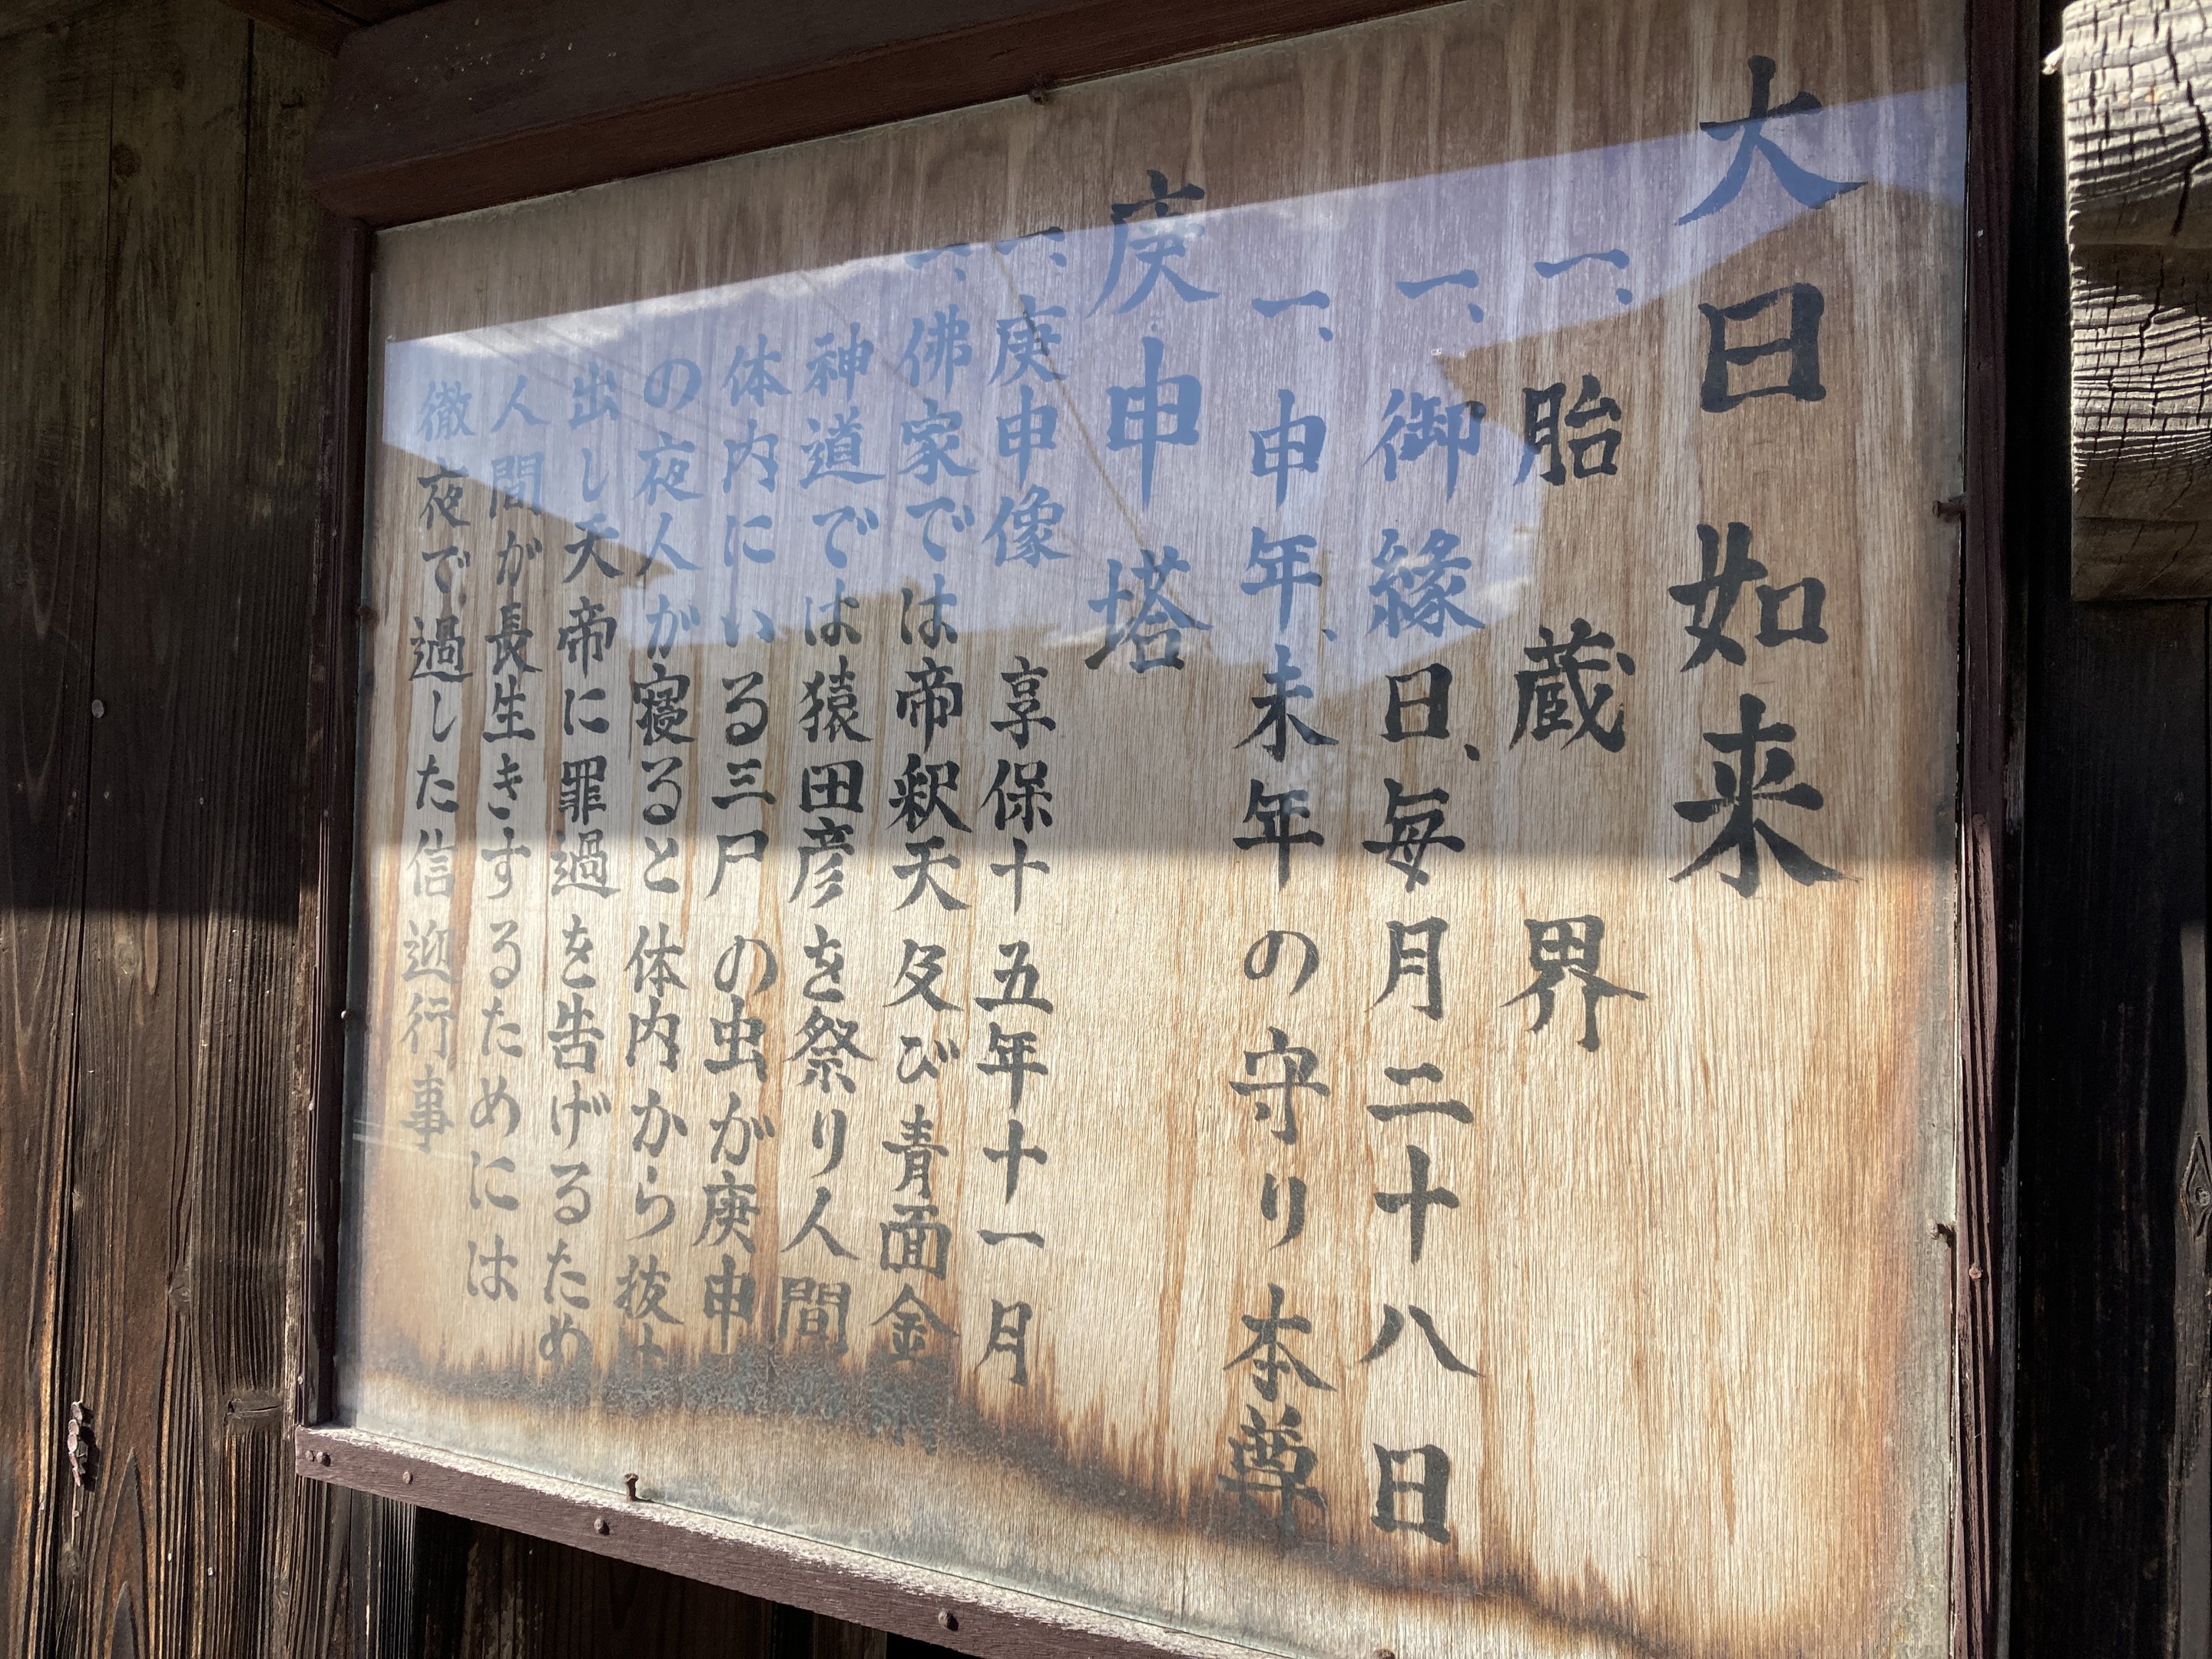 大日如来
一、胎蔵界
一、御縁日、毎月二十八日
一、申年、未年の守り本尊
庚申塔
一、庚申像 享保十五年十一月
一、佛家では帝釈天及び青面金
神道では猿田彦を祭り人間
体内にいる三尸の虫が庚申
の夜人が寝ると体内から抜け
出し天帝に罪過を告げるため
人間が長生きするためには
徹夜で過した信迎行事